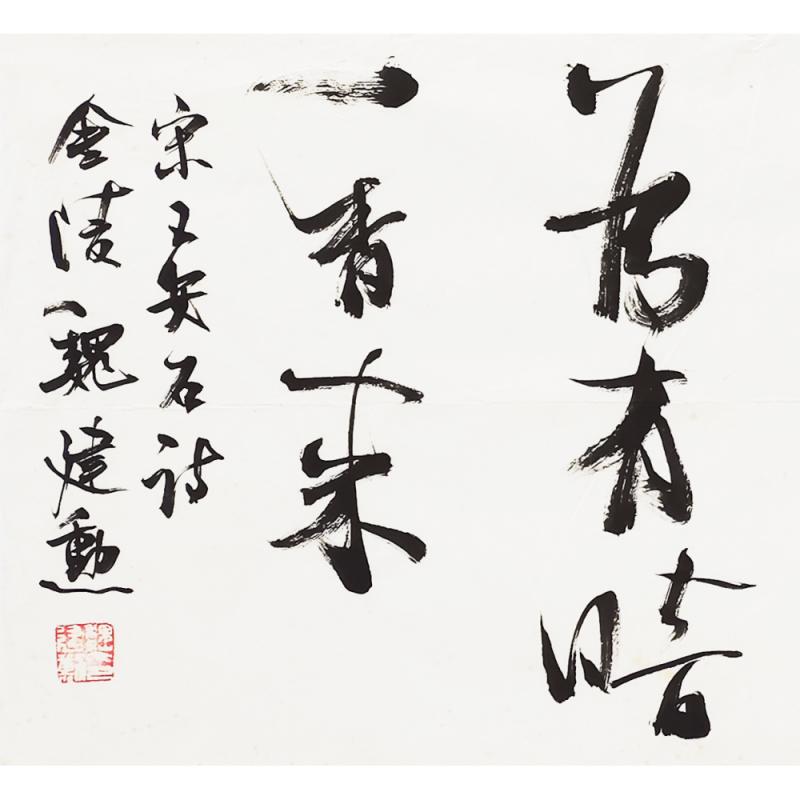 為有暗
香來
宋王安石詩
金陵魏建勳